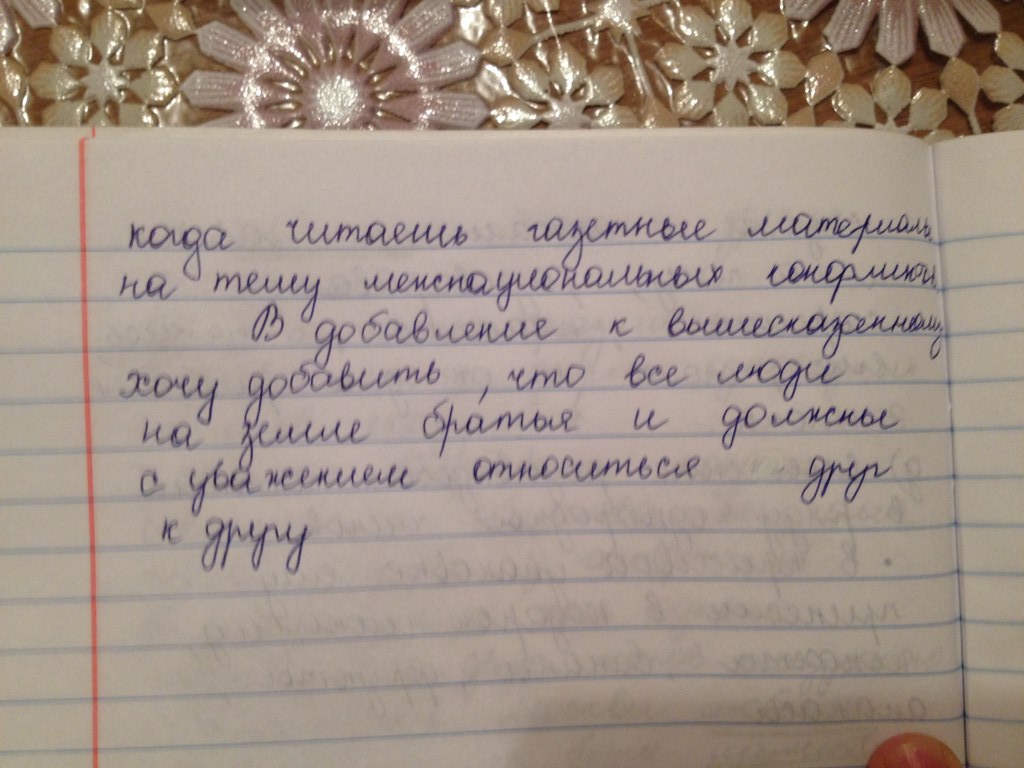 когда читаешь газетные материалы
на тему межнациональных
В добавление к вышесказанному
хочу добавить, что все люди
на земле братья и должны
с уважением относиться друг
к другу